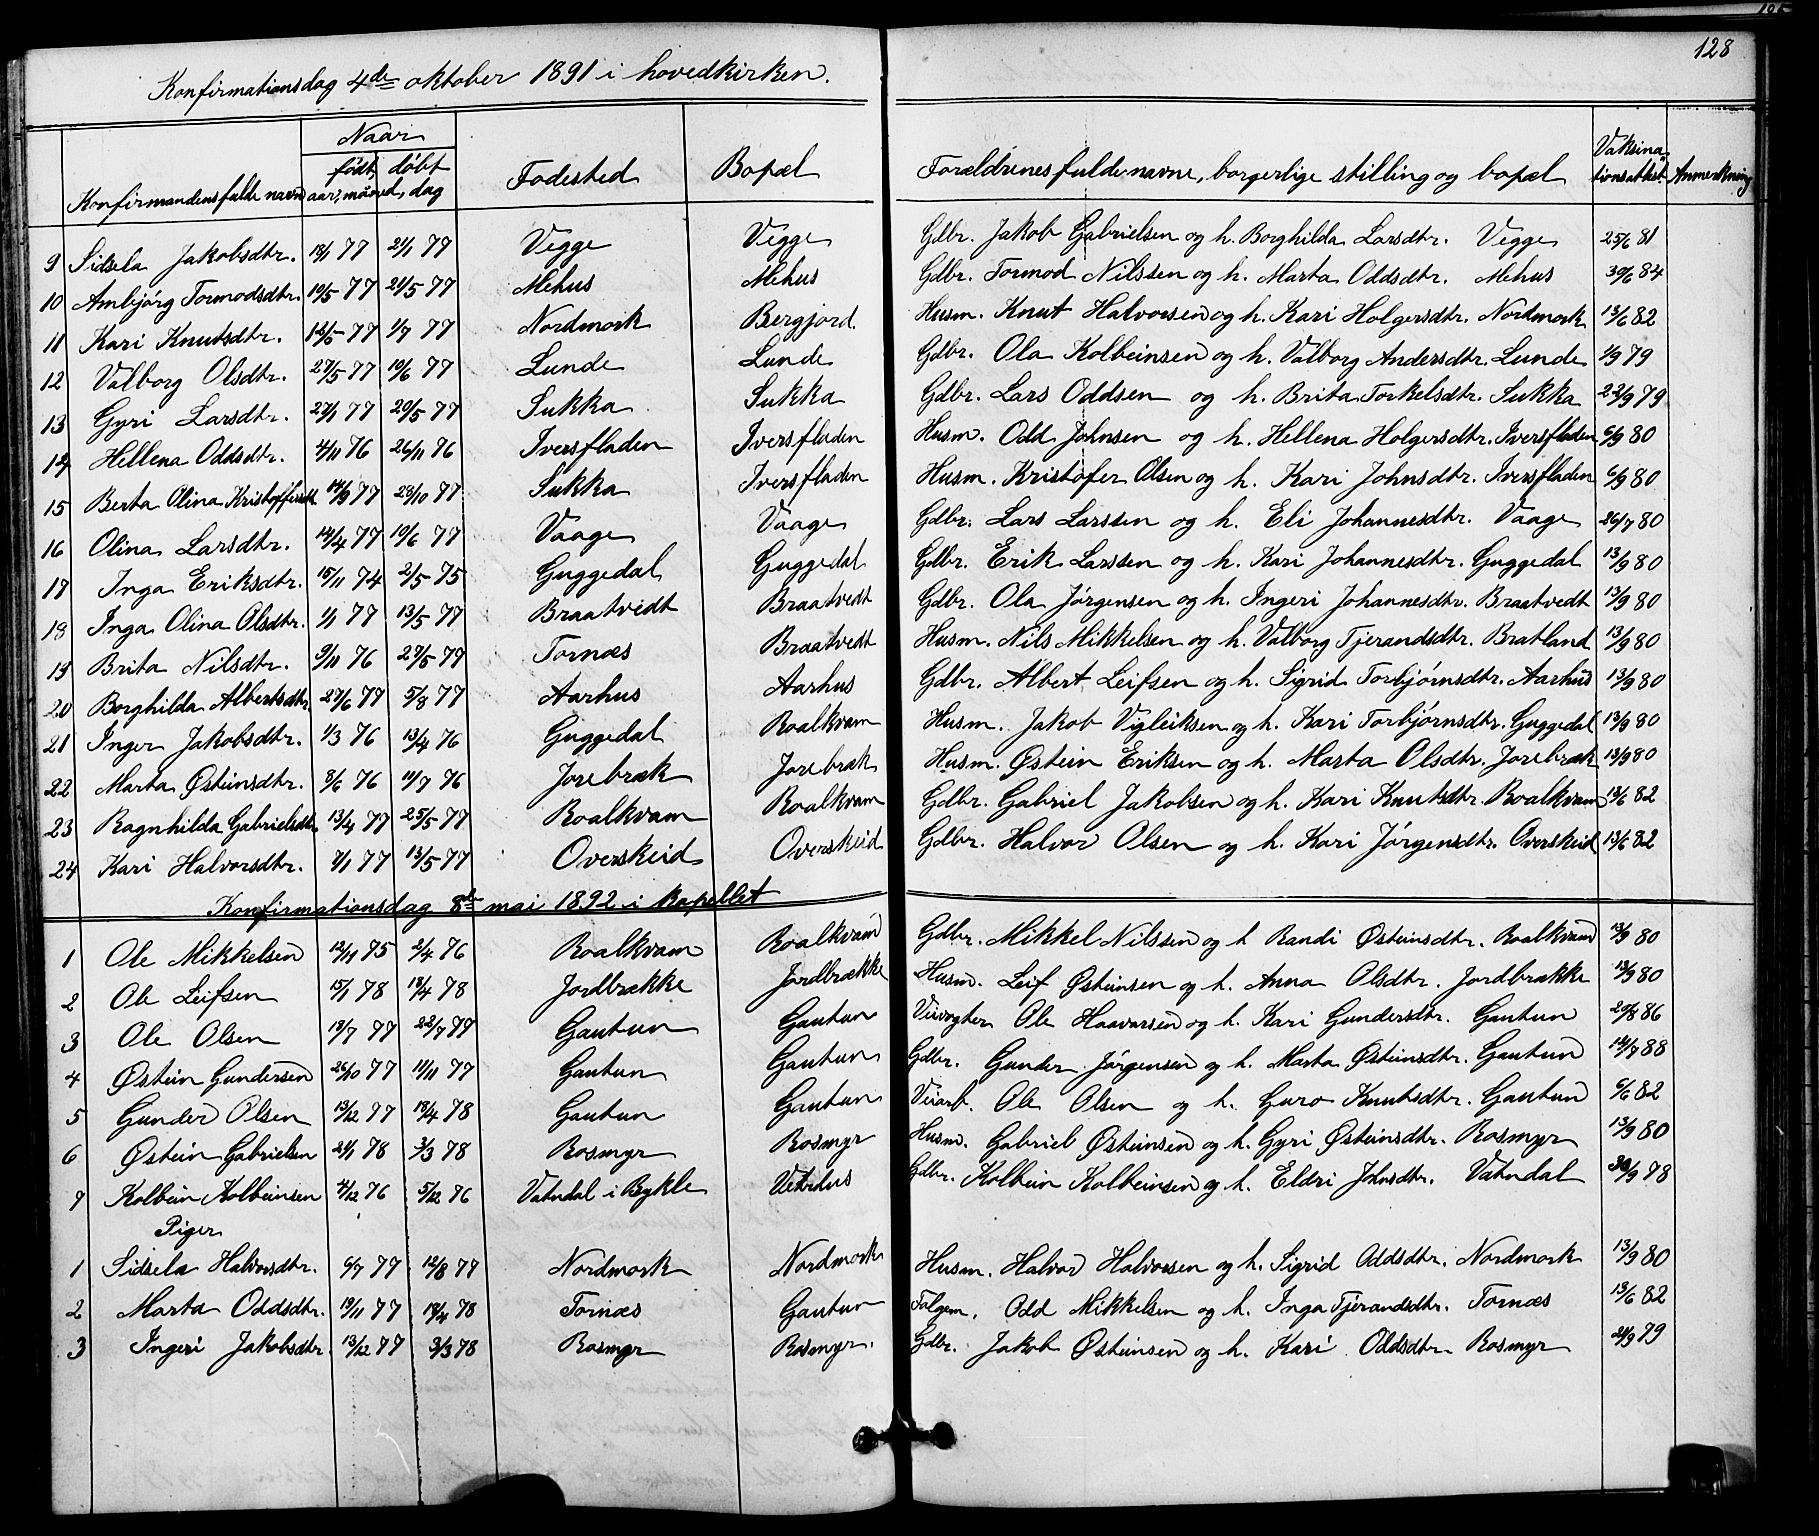 128
Konfirmationsdag 4de oktober 1891 i hovedkirken.
Konfirmandens fulde navn | Naar født, døbt aar, maaned, dag | Fødested | Bopæl | Forældrenes fulde navne, borgerlige stilling og bopæl | Vaksinationsattest | Anmerkning
9 Sidsela Jakobsdtr. 18/1 77 21/1 77 Vegge Vegge Gdbr. Jakob Gabrielsen og h. Borghilda Larsdtr. Vegge 25/6 81
10 Ambjørg Tormodsdtr. 19/5 77 21/5 77 Mehus Mehus Gdbr. Tormod Nilssen og h. Marta Oddsdtr. Mehus 30/6 84
11 Kari Knutsdtr. 12/5 77 1/7 77 Nordmork Bergjord. Husm. Knut Halvorsen og h. Kari Holgersdtr. Nordmork 13/6 82
12 Valborg Olsdtr. 27/5 77 10/6 77 Lunde Lunde Gdbr. Ola Kolbeinsen og h. Valborg Andersdtr. Lunde 1/9 79
13 Gyri Larsdtr. 27/1 77 20/5 77 Sukka Sukka Gdbr. Lars Oddsen og h. Brita Torkelsdtr. Sukka 22/9 79
14 Hellena Oddsdtr. 4/11 76 26/11 76 Iversfladen Iversfladen Husm. Odd Johnsen og h. Hellena Holgersdtr. Iversfladen 6/9 80
15 Berta Olina Kristoffersdt 14/9 77 29/10 77 Sukka Iversfladen Husm. Kristofer Olsen og h. Kari Johnsdtr. Iversfladen 6/9 80
16 Olina Larsdtr. 14/4 77 10/6 77 Vaage Vaage Gdbr. Lars Larssen og h. Eli Johannesdtr. Vaage 26/7 80
17 Inga Eriksdtr. 15/11 74 2/5 75 Guggedal Guggedal Gdbr. Erik Larssen og h. Kari Johannesdtr. Guggedal 13/9 80
18 Inga Olina Olsdtr. 1/1 77 13/5 77 Braatvedt Braatvedt Gdbr. Ola Jørgensen og h. Ingeri Johannesdtr. Braatvedt 13/9 80
19 Brita Nilsdtr. 9/10 76 27/5 77 Tornæs Braatvedt Husm. Nils Mikkelsen og h. Valborg Tjerandsdtr. Bratland 13/9 80
20 Borghilda Albertsdtr. 27/6 77 5/8 77 Aarhus Aarhus Gdbr. Albert Leifsen og h. Sigrid Torbjørnsdtr. Aarhus 13/9 80
21 Inger Jakobsdtr. 1/3 76 13/4 76 Guggedal Roalkvam Husm. Jakob Vigleiksen og h. Kari Torbjørnsdtr. Guggedal 13/9 80
22 Marta Østeinsdtr. 8/6 76 10/7 76 Jorebræk Jorebræk Husm. Østein Eriksen og h. Marta Olsdtr. Jorebræk 13/9 80
23 Ragnhilda Gabrielsdtr. 13/4 77 25/5 77 Roalkvam Roalkvam Gdbr. Gabriel Jakobsen og h. Kari Knutsdtr. Roalkvam 13/6 82
24 Kari Halvorsdtr. 7/1 77 13/5 77 Overskeid Overskeid Gdbr. Halvor Olsen og h. Kari Jørgensdtr. Overskeid 13/6 82
Konfirmationsdag 8de mai 1892 i kapellet
1 Ole Mikkelsen 12/11 75 2/4 76 Roalkvam Roalkvam Gdbr. Mikkel Nilssen og h Randi Østeinsdtr. Roalkvam 13/9 80
2 Ole Leifsen 15/1 78 18/4 78 Jordbrække Jordbrække Husm. Leif Østeinsen og h. Anna Olsdtr. Jordbrække 13/9 80
3 Ole Olsen 18/7 77 22/7 77 Gautun Gautun Veivogter Ole Haavarsen og h. Kari Gundersdtr. Gautun 20/8 86
4 Østein Gundersen 26/10 77 11/11 77 Gautun Gautun Gdbr. Gunder Jørgensen og h. Marta Østeinsdtr. Gautun 14/7 88
5 Gunder Olsen 13/12 77 18/4 78 Gautun Gautun Veiarb. Ole Olsen og h. Guro Knutsdtr. Gautun 6/6 82
6 Østein Gabrielsen 21/1 78 3/3 78 Rosmyr Rosmyr Husm. Gabriel Østeinsen og h. Gyri Østeinsdtr. Rosmyr 13/9 80
7 Kolbein Kolbeinsen 4/12 76 5/12 76 Vatndal i Bykle Gdbr. Kolbein Kolbeinsen og h. Eldri Johnsdtr. Vatndal 30/9 78
Piger
1 Sidsela Halvorsdtr. 6/7 77 12/8 77 Nordmork Nordmork Husm. Halvor Halvorsen og h. Sigrid Oddsdtr. Nordmork 13/9 80
2 Marta Oddsdtr. 19/11 77 18/4 78 Tornæs Gautun Odd Mikkelsen og h. Inga Tjerandsdtr. Tornæs 13/6 82
3 Ingeri Jakobsdtr. 13/12 77 3/3 78 Rosmyr Rosmyr. Gdbr. Jakob Østeinsen og h. Kari Oddsdtr. Rosmyr 21/9 79